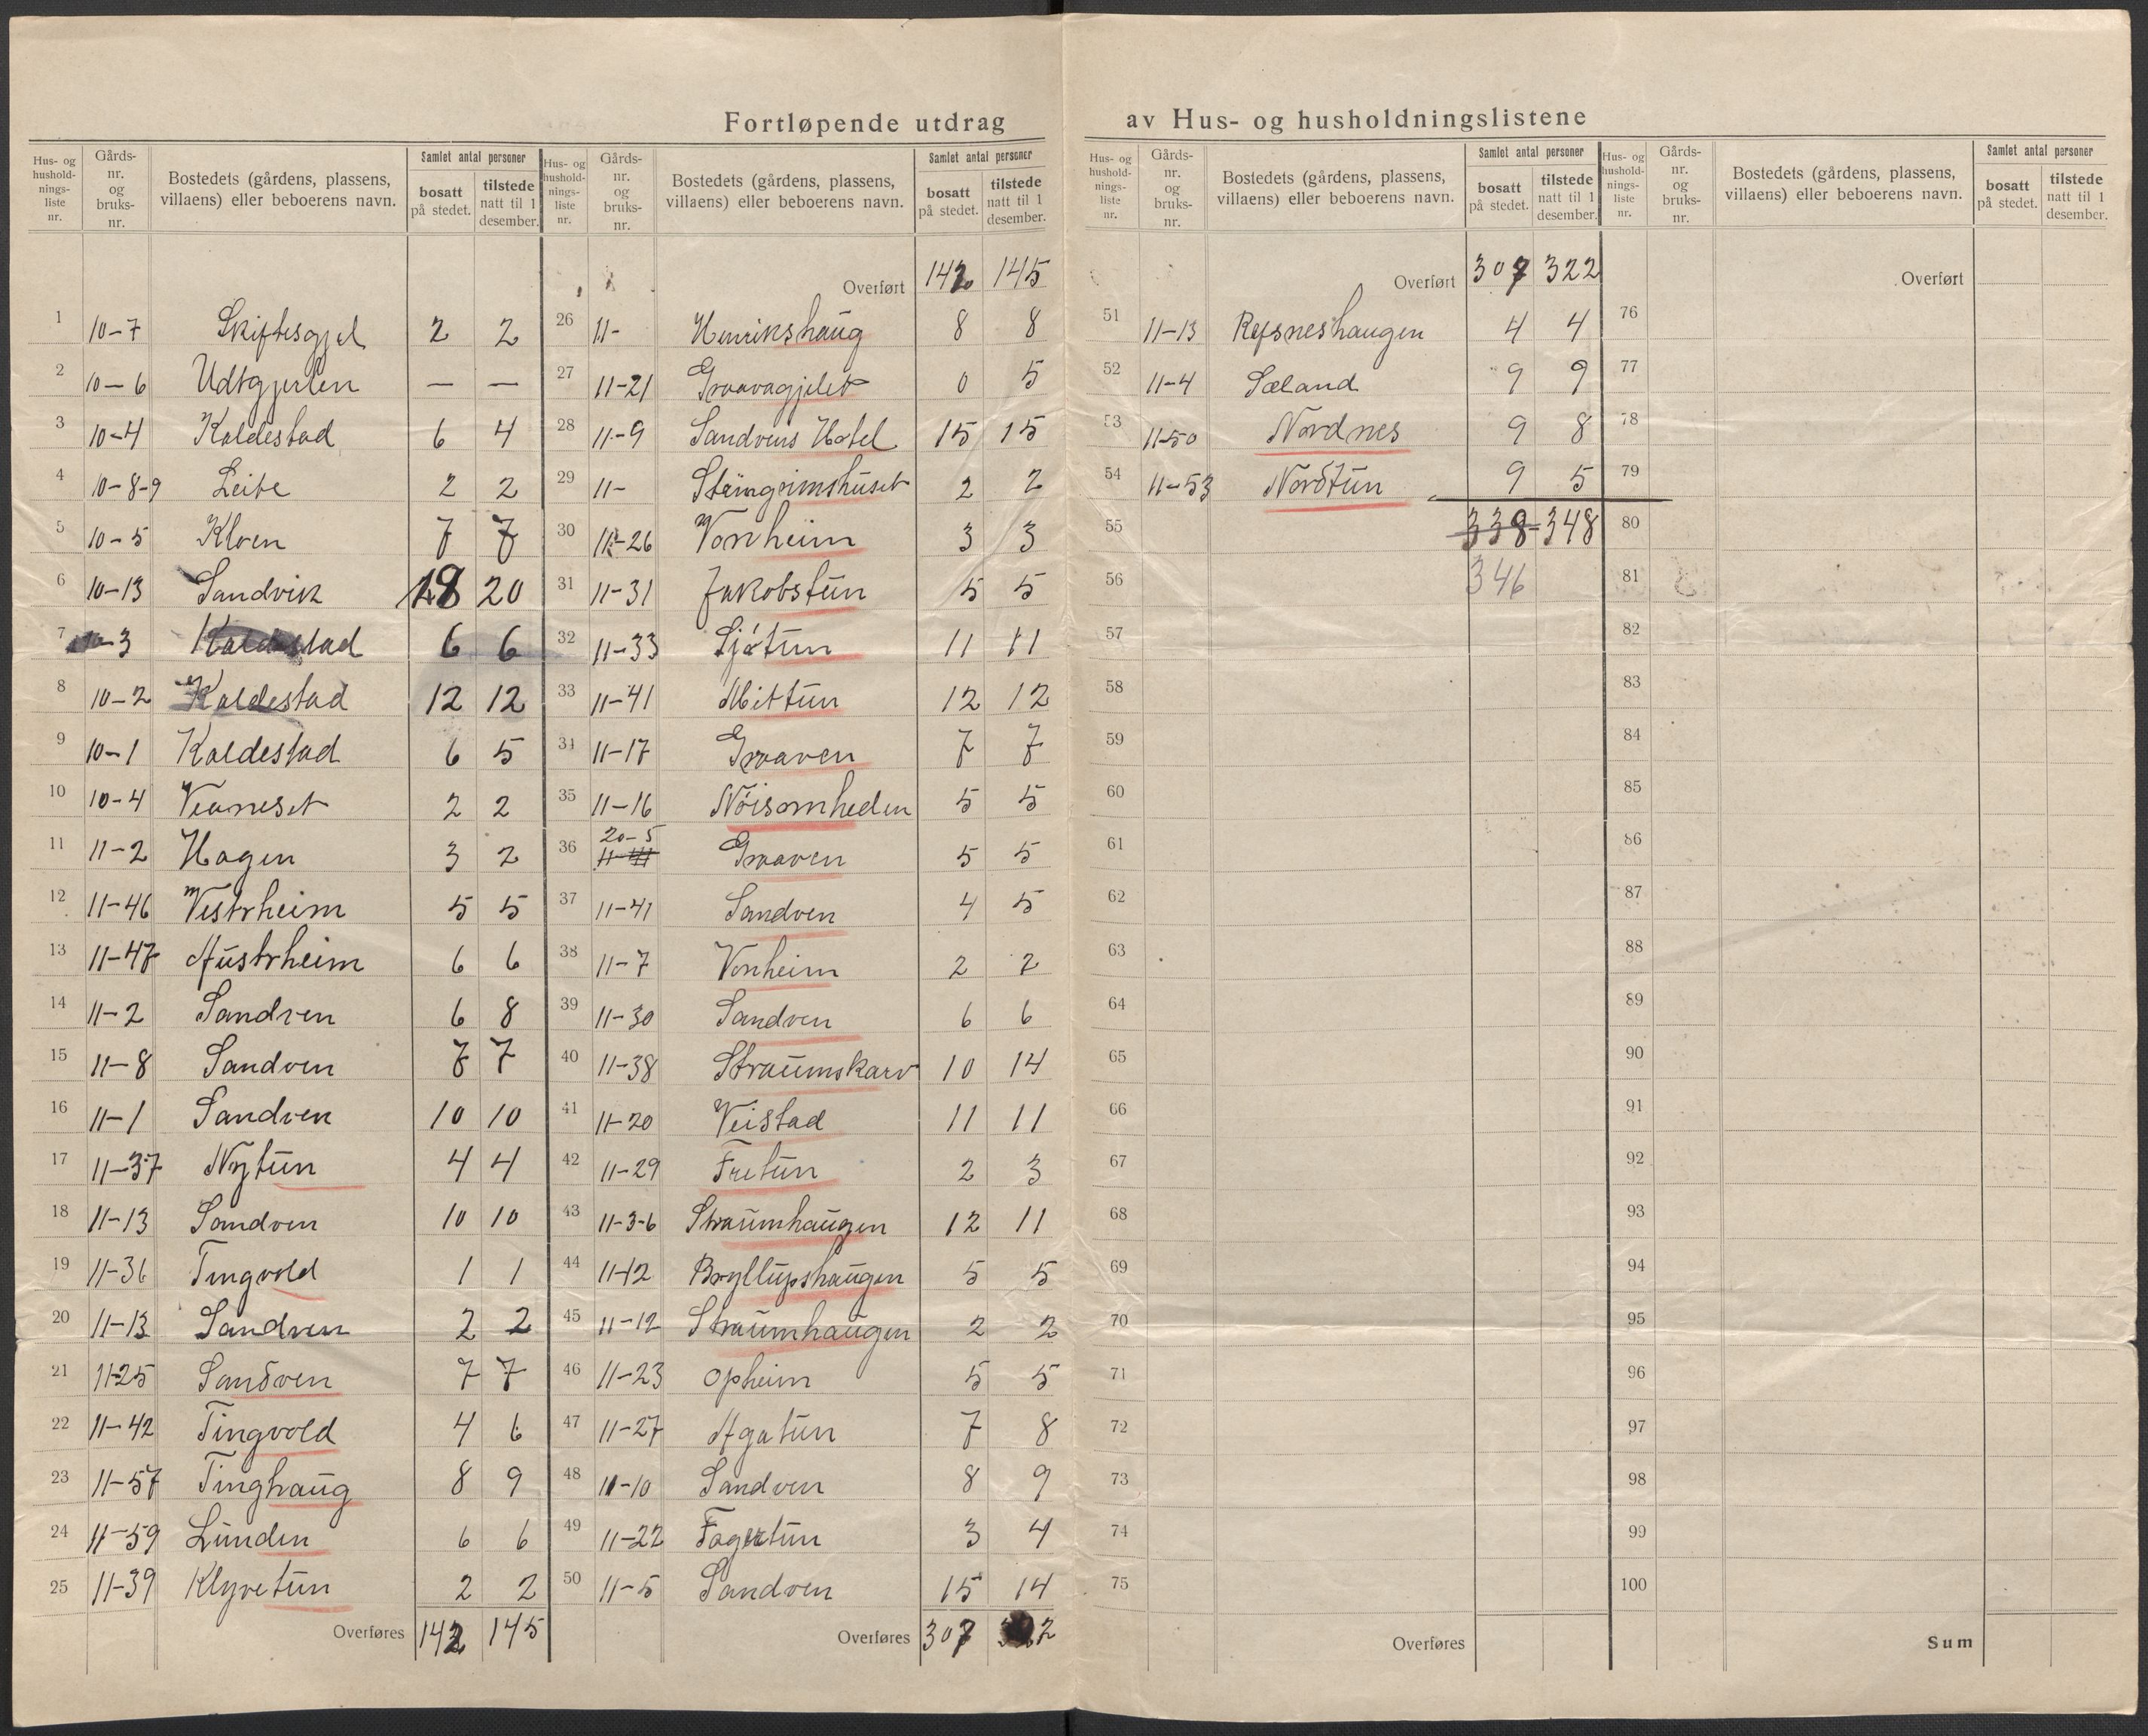 Fortløpende utdrag av Hus- og husholdningslistene
Hus- og hushold- nings- liste nr. Gårds- nr. og bruks- nr. Bostedets (gårdens, plassens, villaens) eller beboerens navn. Samlet antal personer bosatt på stedet. tilstede natt til 1 desember.
1 10-7 Skiftesgjel 2 2
2 10-6 Udtgjerlen — —
3 10-4 Kaldestad 6 4
4 10-8-9 Leite 2 2
5 10-5 Kloen 7 7
6 10-13 Sandvik 18 20
7 10-3 Kaldestad 6 6
8 10-2 Kaldestad 12 12
9 10-1 Kaldestad 6 5
10 10-4 Veaneset 2 2
11 11-2 Hagen 3 2
12 11-46 Vestrheim 5 5
13 11-47 Austrheim 6 6
14 11-2 Sandven 6 8
15 11-8 Sandven 7 7
16 11-1 Sandven 10 10
17 11-37 Nytun 4 4
18 11-13 Sandven 10 10
19 11-36 Tingvold 1 1
20 11-13 Sandven 2 2
21 11-25 Sandven 7 7
22 11-42 Tingvold 4 6
23 11-57 Tinghaug 8 9
24 11-59 Lunden 6 6
25 11-39 Klyvetun 2 2
Overføres 142 145
Hus- og hushold- nings- liste nr. Gårds- nr. og bruks- nr. Bostedets (gårdens, plassens, villaens) eller beboerens navn. Samlet antal personer bosatt på stedet. tilstede natt til 1 desember.
Overført 142 145
26 11- Henrikshaug 8 8
27 11-21 Graavagjelet 0 5
28 11-9 Sandvens Hotel 15 15
29 11- Steingrimshuset 2 2
30 11-26 Vonheim 3 3
31 11-31 Jakobstun 5 5
32 11-33 Sjøtun 11 11
33 11-41 Mittun 12 12
34 11-17 Graaven 7 7
35 11-16 Nöisomheden 5 5
36 20-5 Graaven 5 5
37 11-41 Sandven 4 5
38 11-7 Vonheim 2 2
39 11-30 Sandven 6 6
40 11-38 Straumskarv 10 14
41 11-20 Veistad 11 11
42 11-29 Fretun 2 3
43 11-3-6 Straumhaugen 12 11
44 11-12 Bryllupshaugen 5 5
45 11-12 Straumhaugen 2 2
46 11-23 Opheim 5 5
47 11-27 Agatun 7 8
48 11-10 Sandven 8 9
49 11-22 Fagertun 3 4
50 11-5 Sandven 15 14
Overføres 307 322
Hus- og hushold- nings- liste nr. Gårds- nr. og bruks- nr. Bostedets (gårdens, plassens, villaens) eller beboerens navn. Samlet antal personer bosatt på stedet. tilstede natt til 1 desember.
Overført 307 322
51 11-13 Refsneshaugen 4 4
52 11-4 Sæland 9 9
53 11-50 Nordnes 9 8
54 11-53 Nordtun 9 5
55 338-348
56 346
57
58
59
60
61
62
63
64
65
66
67
68
69
70
71
72
73
74
75
Overføres
Hus- og hushold- nings- liste nr. Gårds- nr. og bruks- nr. Bostedets (gårdens, plassens, villaens) eller beboerens navn. Samlet antal personer bosatt på stedet. tilstede natt til 1 desember.
Overført
76
77
78
79
80
81
82
83
84
85
86
87
88
89
90
91
92
93
94
95
96
97
98
99
100
Sum